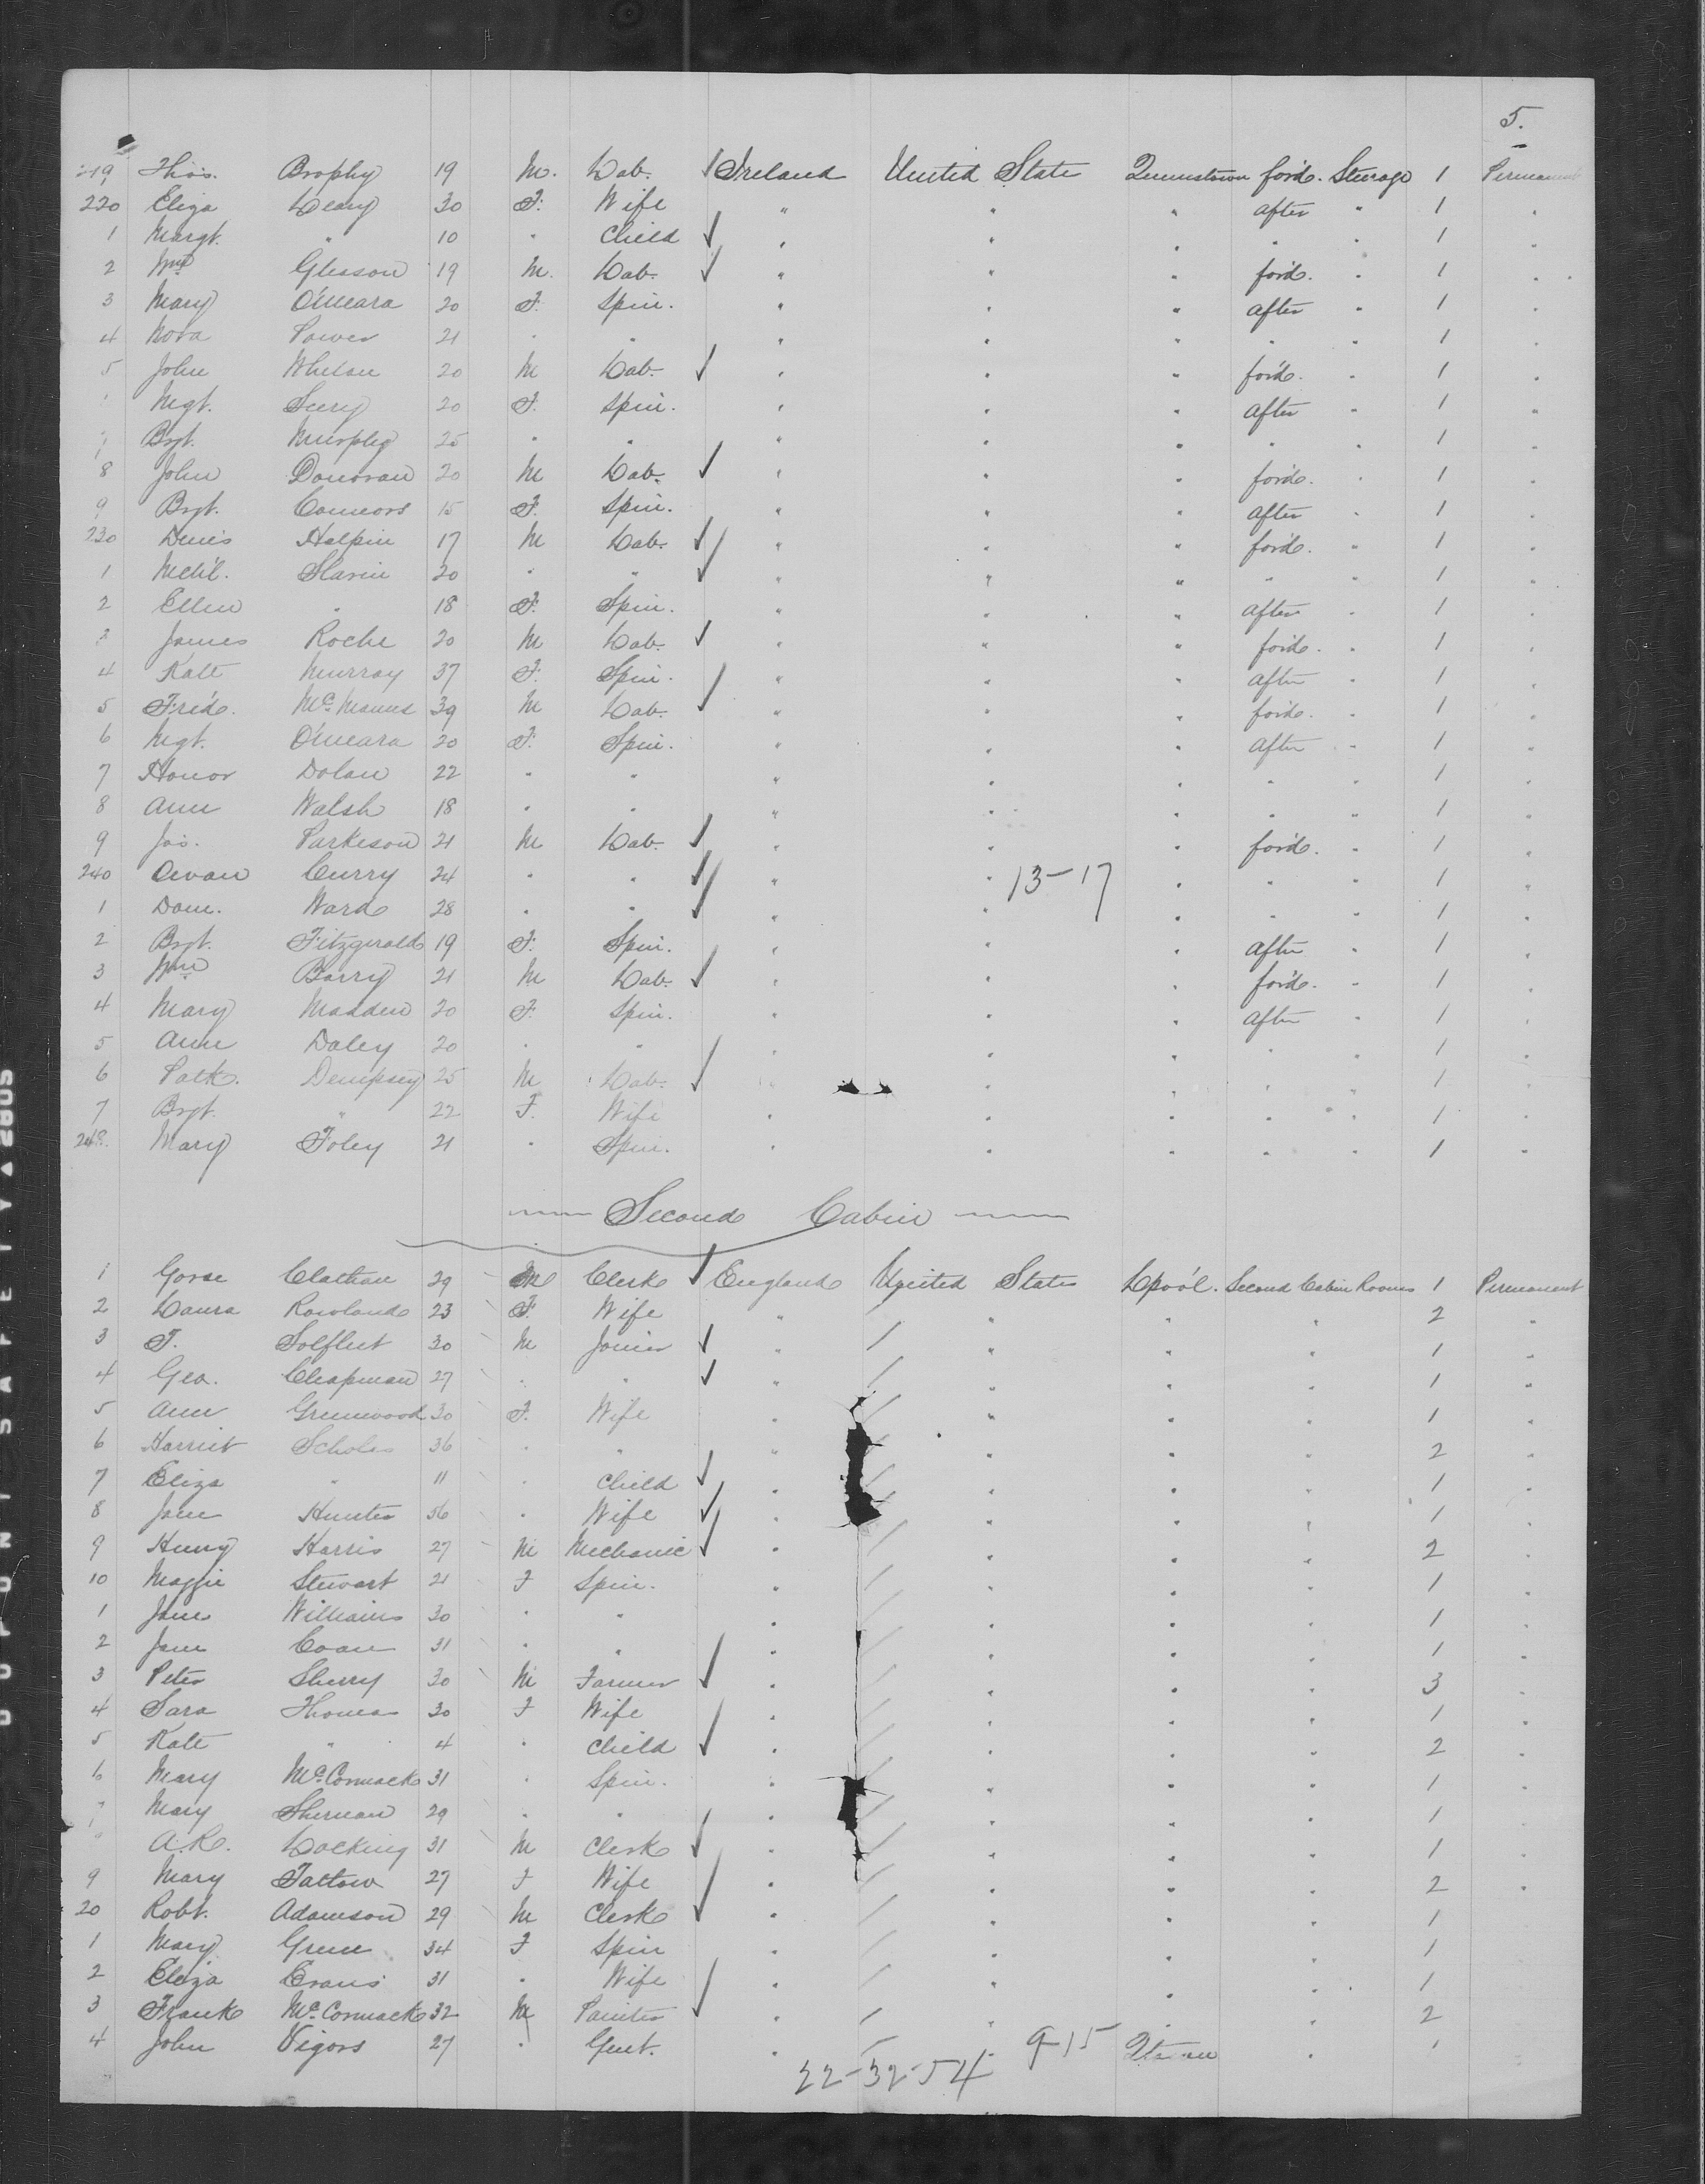 5.
219 Thos. Brophy 19 M. Lab. Ireland United State Queenstown for'd. Steerage 1 Permanent
220 Eliza Leary 30 F. Wife " " " after " 1 "
1 Margt. " 10 " Child " " " " " 1 "
2 Wm Gleason 19 M. Lab. " " " for'd. " 1 "
3 Mary O'Meara 20 F. Spin. " " " after " 1 "
4 Nora Power 21 " " " " " " " 1 "
5 John Whelan 20 M Lab. " " " for'd. " 1 "
Mgt. Seery 20 F. Spin. " " " after " 1 "
7 Bgt. Murphy 25 " " " " " " " 1 "
8 John Donovan 20 M Lab. " " " for'd. " 1 "
9 Bgt. Connors 15 F. Spin. " " " after " 1 "
230 Denis Halpin 17 M Lab. " " " for'd. " 1 "
1 Mch'l. Slavin 20 " " " " " " " 1 "
2 Ellen " 18 F. Spin. " " " after " 1 "
3 James Roche 20 M Lab. " " " for'd. " 1 "
4 Kate Murray 37 F. Spin. " " " after " 1 "
5 Fred. McManus 39 M Lab. " " " for'd. " 1 "
6 Mgt. O'Meara 20 F. Spin. " " " after " 1 "
7 Honor Dolan 22 " " " " " " " 1 "
8 Ann Walsh 18 " " " " " " " 1 "
9 Jas. Parkeson 21 M Lab. " " " for'd. " 1 "
240 Owan Curry 24 " " " " 13-17 " " " 1 "
1 Dom. Ward 28 " " " " " " " 1 "
2 Bgt. Fitzgerald 19 F. Spin. " " " after " 1 "
3 Wm Barry 21 M Lab. " " " for'd. " 1 "
4 Mary Madden 20 F. Spin. " " " after " 1 "
5 Ann Daley 20 " " " " " " " 1 "
6 Patk. Dempsey 25 M Lab. " " " " " 1 "
7 Bgt. " 22 F. Wife " " " " " 1 "
248 Mary Foley 21 " Spin. " " " " " 1 "
Second Cabin
1 Clerk England United States L'pool. Second Cabin Rooms 1 Permanent
2 Laura Rowland 23 F. Wife " " " " 2 "
3 F. Solfleet 30 M Joiner " " " " 1 "
4 Geo. Chapman 27 " " " " " " 1 "
5 Ann Greenwood 30 F. Wife " " " " 1 "
6 Harriet Scholes 36 " " " " " " 2 "
7 Eliza " 11 " Child " " " " 1 "
8 Jane Hunter 56 " Wife " " " " 1 "
9 Henry Harris 27 M Mechanic " " " " 2 "
10 Maggie Stewart 21 F Spin. " " " " 1 "
1 Jane Williams 30 " " " " " " 1 "
2 Jane Coan 31 " " " " " " 1 "
3 Peter Sherry 30 M Farmer " " " " 3 "
4 Sara Thomas 30 F Wife " " " " 1 "
5 Kate " 4 " Child " " " " 2 "
6 Mary McCormack 31 " Spin. " " " " 1 "
7 Mary Sherman 29 " " " " " " 1 "
A.R. Locking 31 M Clerk " " " " 1 "
9 Mary Tattow 27 F Wife " " " " 2 "
20 Robt. Adamson 29 M Clerk " " " " 1
1 Mary Green 34 F Spin " " " " 1
2 Eliza Evans 31 " Wife " " " " 1
3 Frank McCormack 32 M Painter " " " " 2
4 John Vigors 27 " Gent. " " 9-15 " 1
22-32-54
DUPONT SAFETY